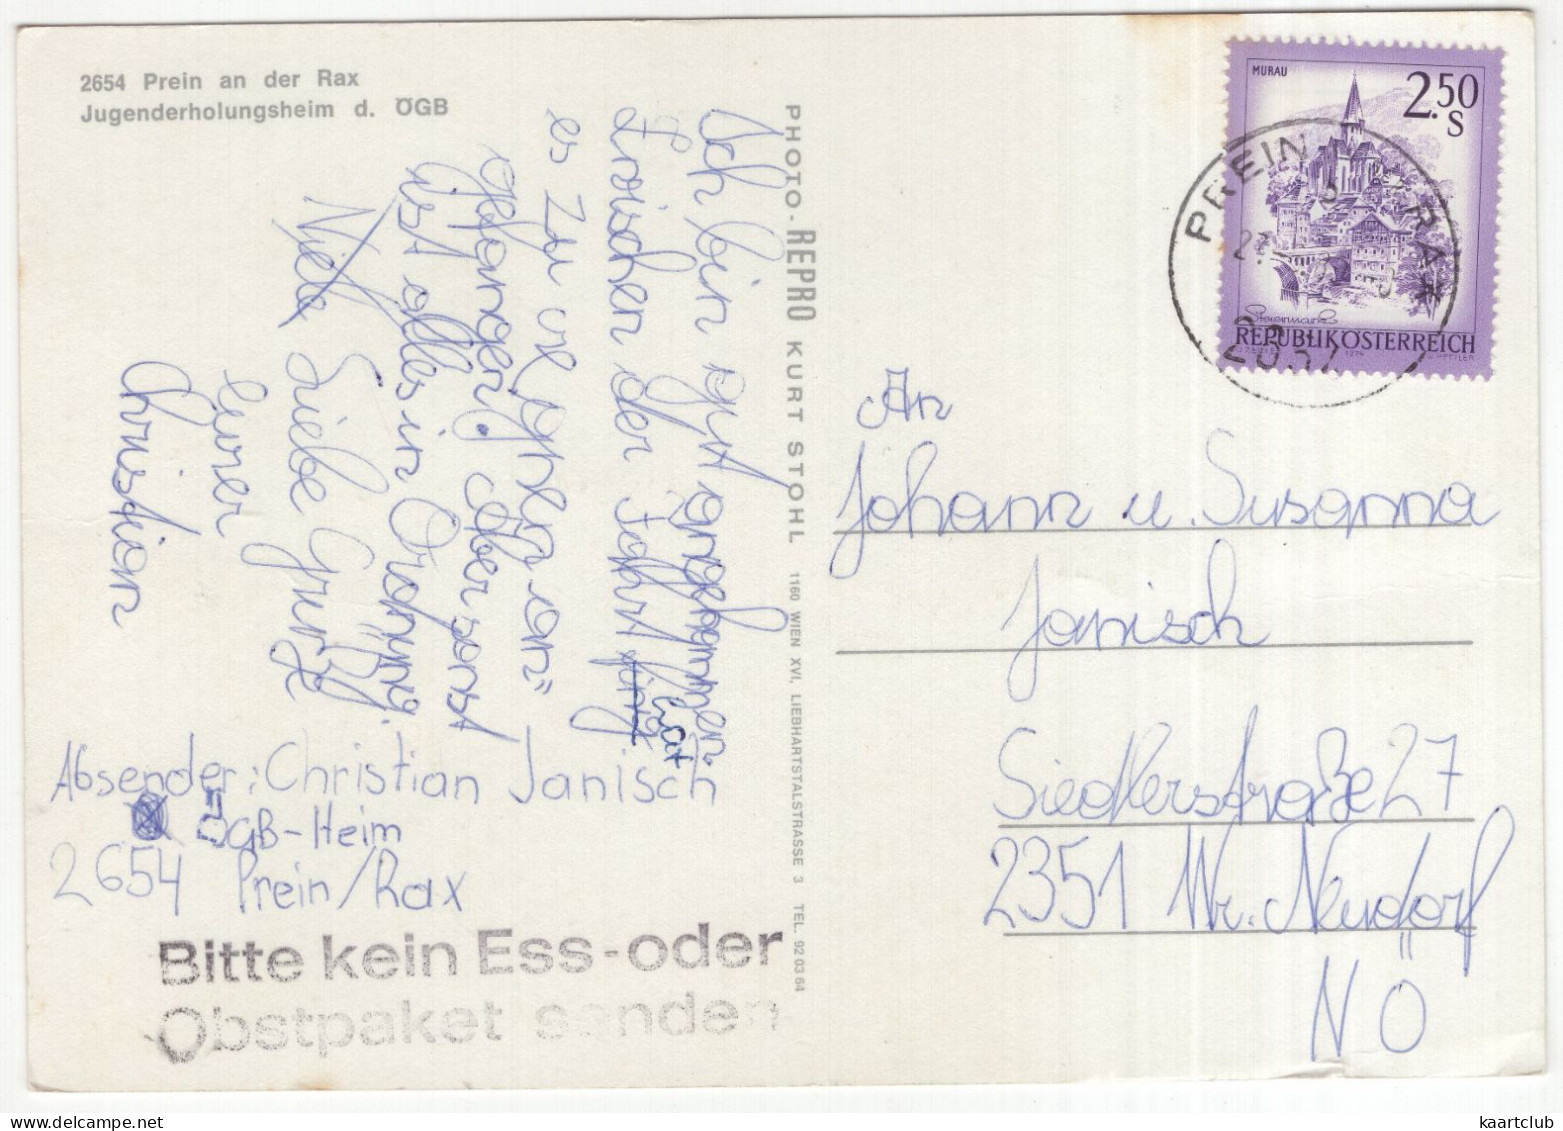 2654 Prein an der Rax
Jugenderholungsheim d. ÖGB
Ich bin gut angekommen.
Zwischen der Fahrt fing hat
es zu regnen an"
gefangen. Aber sonst
ist alles in Ordnung.
Viele Liebe Grüße
eurer
Christian
Absender: Christian Janisch
ÖGB-Heim
2654 Prein/Rax
Bitte kein Ess-oder
Obstpaket senden
PHOTO-REPRO KURT STOHL 1160 WIEN XVI, LIEBHARTSTALSTRASSE 3 TEL. 92 03 64
MURAU
2.50
S
Steiermark
REPUBLIK ÖSTERREICH
1974
PREIN RAX
2654
An
Johann u. Susanna
Janisch
Siedlerstraße 27
2351 Wr. Neudorf
NÖ
kaartclub